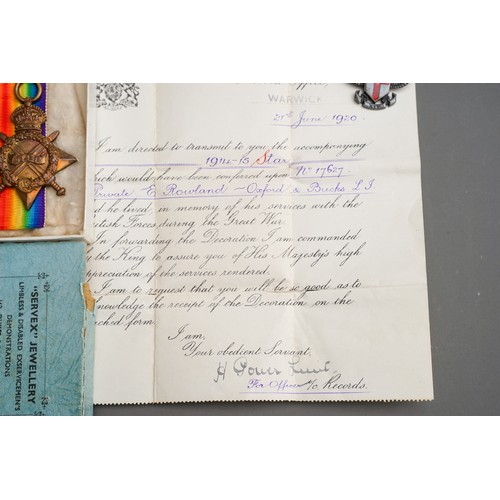 WARWICK
21st June 1920.
I am directed to transmit to you the accompanying
1914-15 Star
would have been conferred upon No 17627
Private E Rowland - Oxford & Bucks L.I.
he lived, in memory of his services with the
Forces during the Great War.
In forwarding the Decoration I am commanded
the King to assure you of His Majesty's high
preciation of the services rendered.
I am to request that you will be so good as to
knowledge the receipt of the Decoration on the
ched form
I am,
Your obedient Servant,
For Officer i/c Records.
"SERVEX" JEWELLERY
LIMBLESS & DISABLED EXSERVICEMEN'S
DEMONSTRATIONS